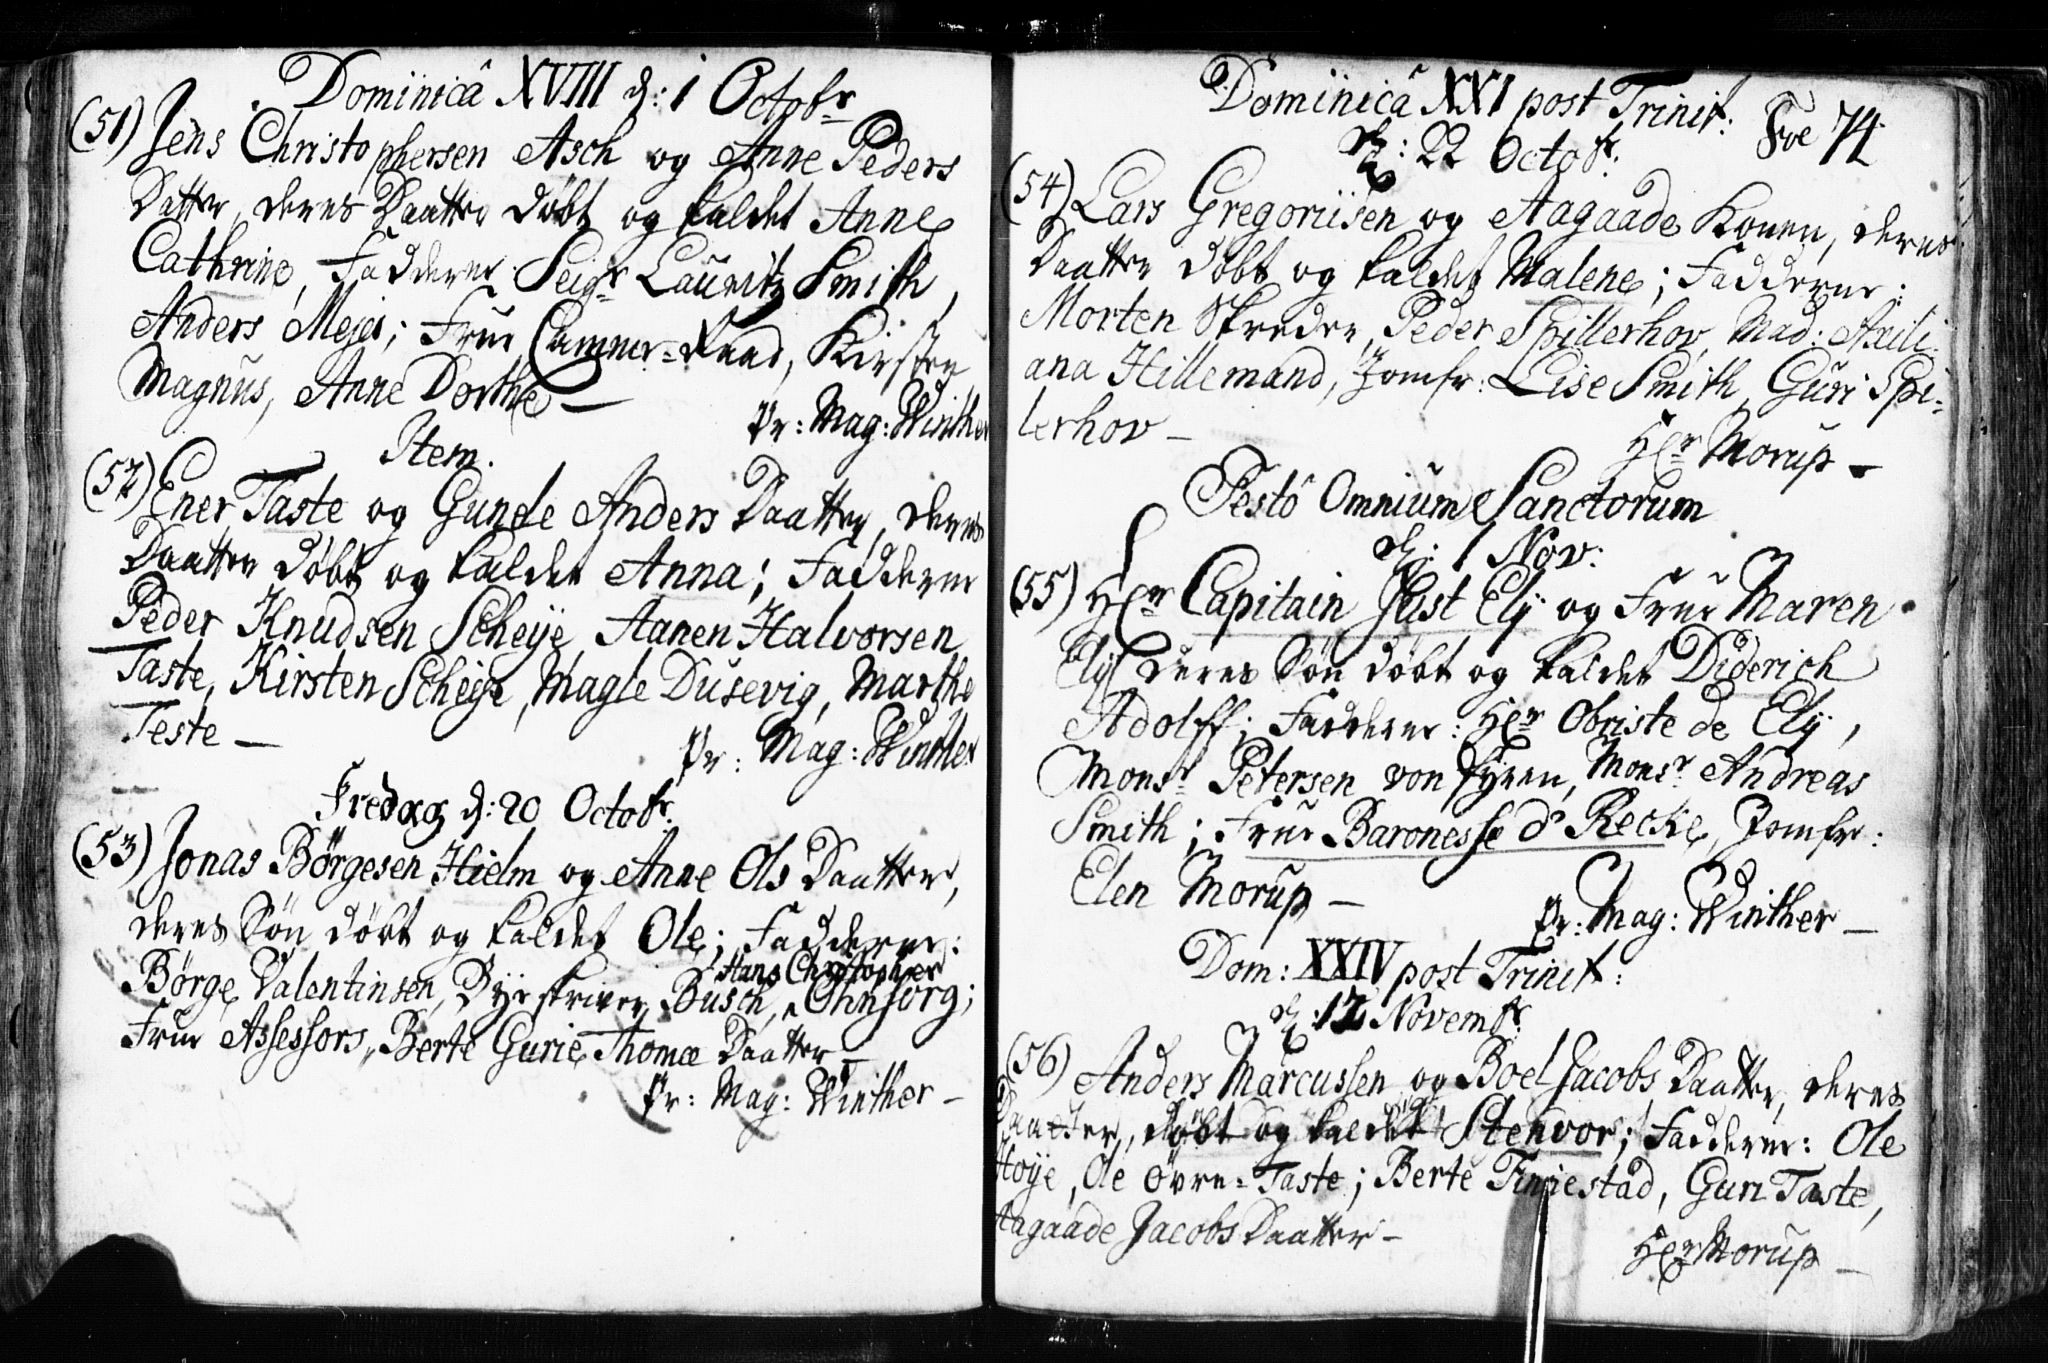 Dominicâ XVIII d: 1 Octobr
(51) Jens Christophersen Asch og Anne Peders
Datter, deres Daatter døbt og kaldet Anne
Cathrine, Faddere: Seigr Lauritz Smith,
Anders Mejer; Frue Cammer-Raad, Kirsten
Magnus, Anne Dorthe —
Pr: Mag: Winther
Item.
(52) Ener Taste og Gunde Anders Daatter, deres
Daatter døbt og kaldet Anna; Fadderne
Peder Knudsen Scheije, Aanen Halvorsen
Taste, Kirsten Scheije, Magle Dusevig, Marthe
Teste —
Pr: Mag: Winther
Fredag d: 20 Octobr.
(53) Jonas Børgesen Hielm og Anne Ols Daatter,
deres Søn døbt og kaldet Ole; Fadderne:
Hans Christopher
Børge Valentinsen, Byeskriver Busch, Ohnsorg;
Frue Assessors, Berte Gurie Thomæ Daatter —
Pr: Mag: Winther —
Dominicâ XXI post Trinit:
d: 22 Octobr.
Foe 74
(54) Lars Gregoriisen og Aagaade Konen, deres
Daatter døbt og kaldet Malene; Fadderne:
Morten Skreder, Peder Spillerhov, Mad: Axili-
ana Hillemand, Jomfr: Lise Smith, Guri Spi-
lerhov —
Hr Morup —
Festô Omnium Sanctorum
d: 1 Nov:
(55) Hr Capitain Just Elÿ og Frue Maren
Elÿ deres Søn døbt og kaldet Diderich
Adolff; Fadderne: Hr Obriste de Elÿ,
Monsr Petersen von Fyren, Monsr Andreas
Smith; Frue Baronesse d' Recke, Jomfr:
Elen Morup —
Pr: Mag: Winther —
Dom: XXIV post Trinit:
d: 12 Novembr.
(56) Anders Marcussen og Boel Jacobs Daatter, deres
Daatter, døbt og kaldet Stenvor; Fadderne: Ole
Høye, Ole Øvre-Taste; Berte Finnestad, Guri Taste,
Aagaade Jacobs Daatter —
Hr Morup —